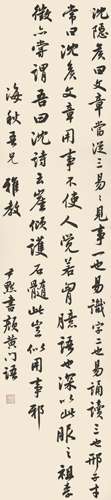 沈隱侯曰文章當從三易易見事一也易識字二也易誦讀三也邢子才
常曰沈侯文章用事不使人覺若胸臆語也深以此服之祖孝
徵亦嘗謂吾曰沈詩云崖傾護石髓此豈似用事邪
海秋吾兄雅教
尹默書顏黃門語